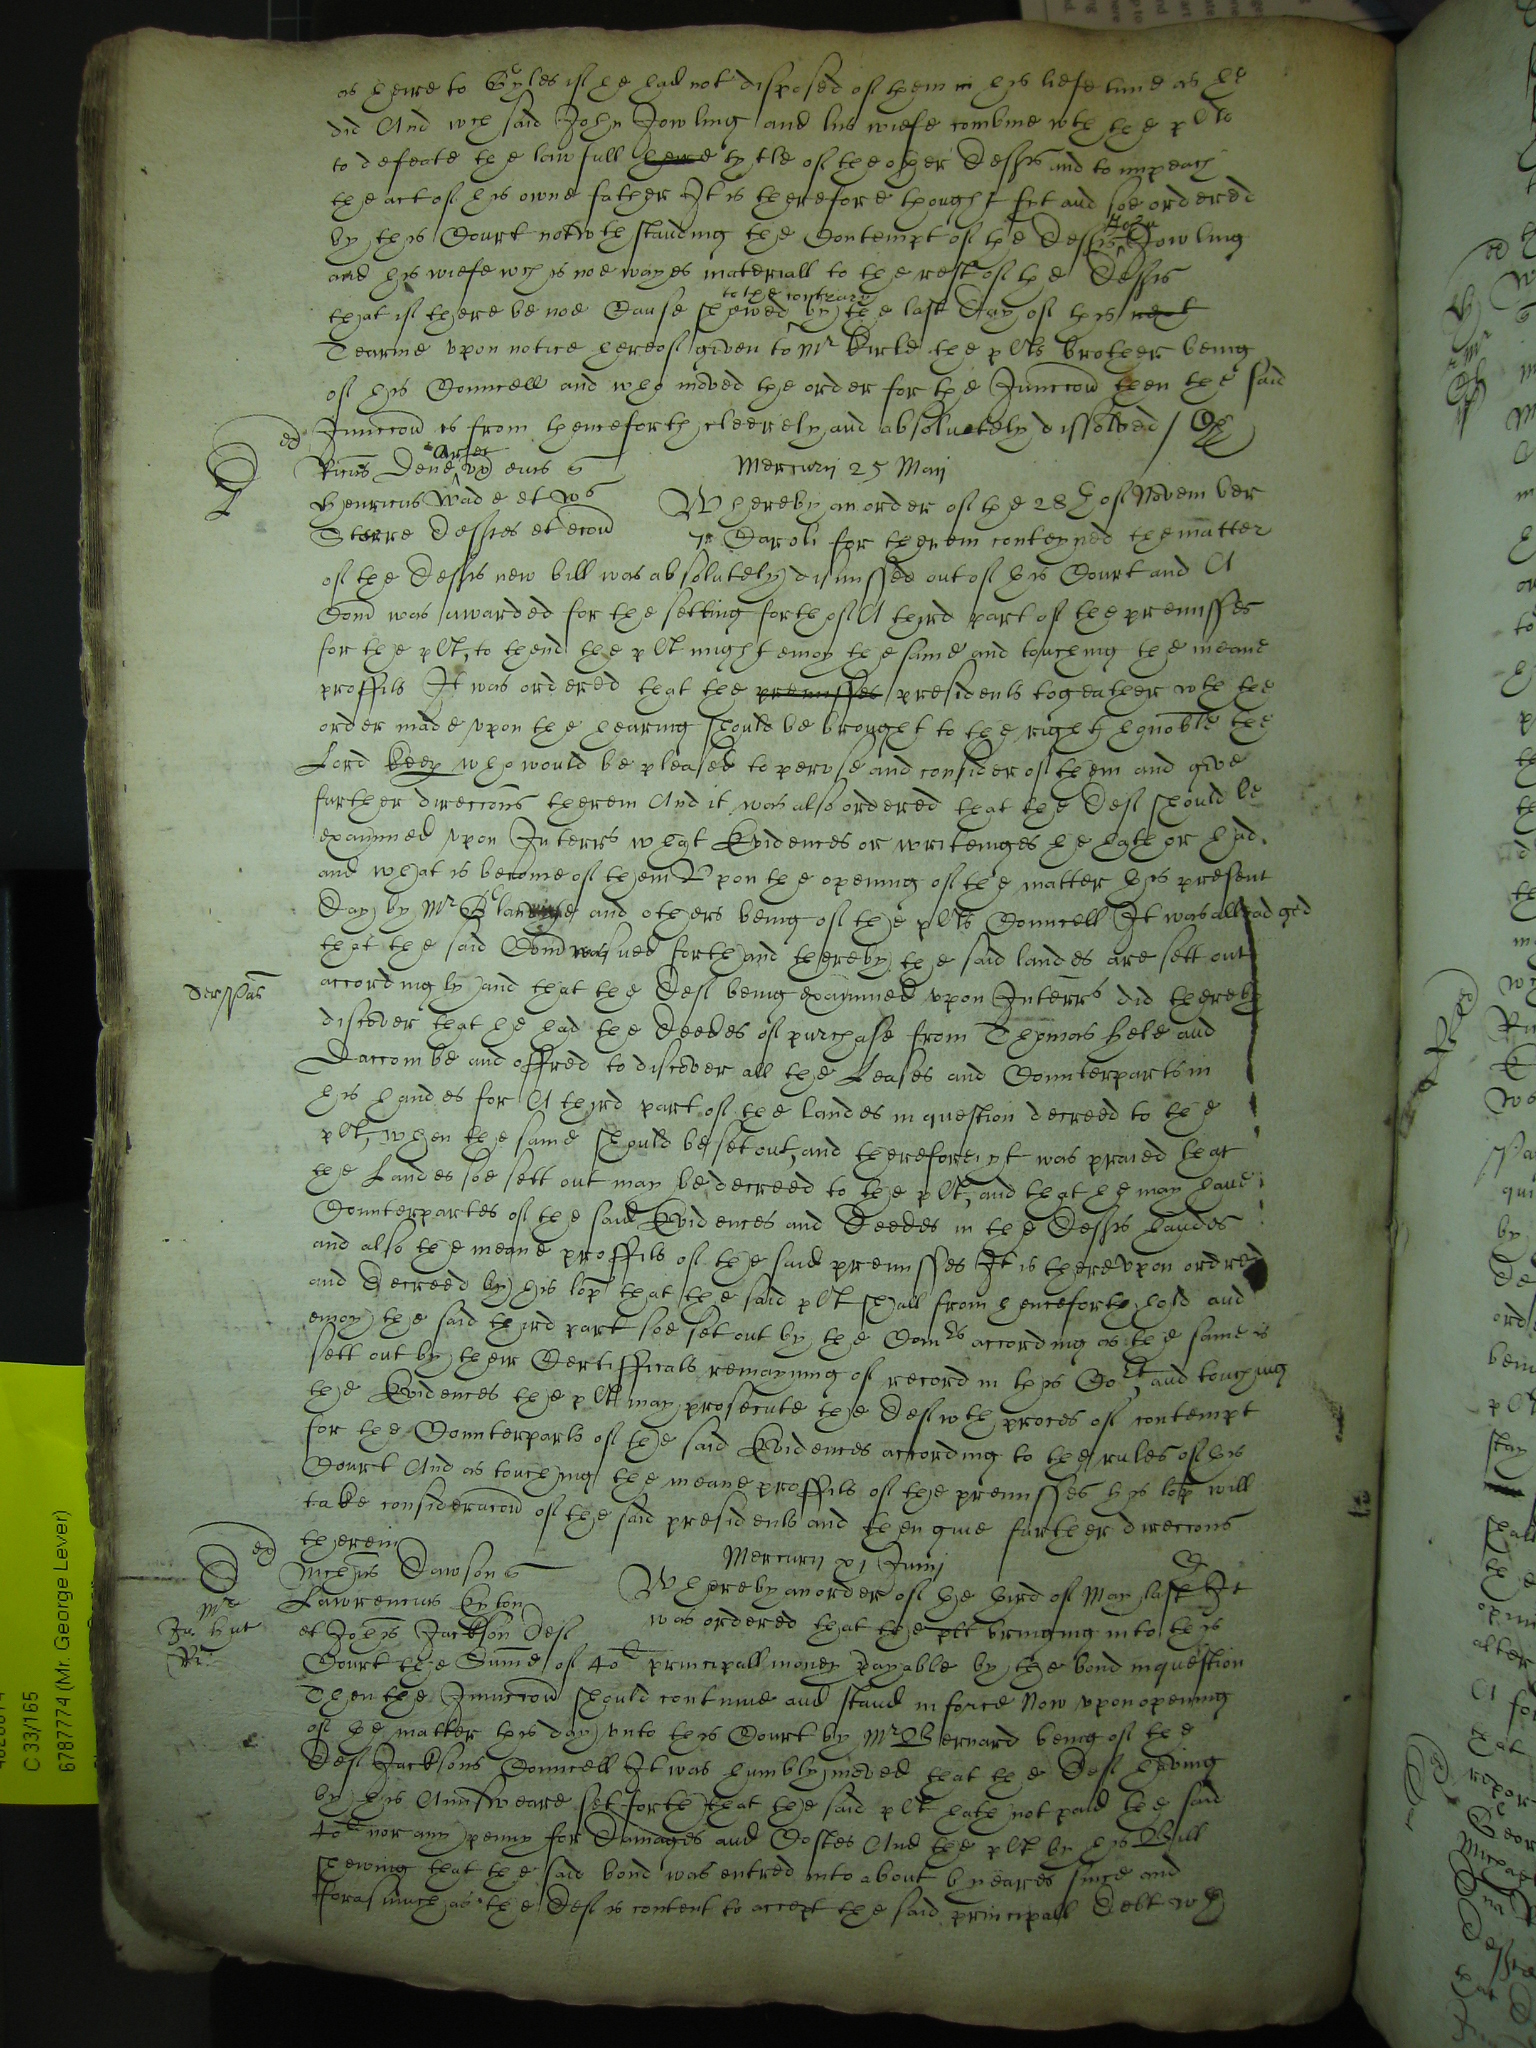 as heire to Gyles if he had not disposed of them in his liefe time as he
did And wch said John Jowling and his wiefe combine wth the plts
to defeate the lawfull heire tytle of the other Defts and to impeach
the act of his owne father It is therefore thought fit and soe ordered
by this Court notwthstanding the Contempt of the Defts John Jowling
and his wiefe wch is noe wayes materiall to the rest of the Defts
that if there be noe Cause shewed to the contrary by the last Day of this next
Tearme upon notice hereof given to Mr Kirle the plts brother being
of his Councell and who moved the order for the Junccon then the said
Junccon is from henceforth cleerely and absolutely dissolved /
Ricus Dene Ar et ux eius
Mercurij 25 Maij
Henricus Wade et ux
Whereby an order of the 28th of November
Sterre Deftes et econ
7o Caroli for therein conteyned the matter
of the Defts new bill was absolutely dismissed out of this Court and A
Com was awarded for the setting forth of A third part of the premisses
for the plt, to thend the plt might enioy the same and touching the meane
proffits It was ordered that the premisses presidents togeather wth the
order made upon the hearing should be brought to the right honoble the
Lord Keep who would be pleased to peruse and consider of them and give
further direccons therein And it was also ordered that the Deft should be
examined upon Interrs what Evidences or writeinges he hath or had
and what is become of them Upon the opening of the matter this present
Day by Mr and others being of the plts Councell It was alleadged
that the said Com was sued forth and thereby the said landes are sett out
accordingly and that the Deft being examined upon Interrs did thereby
discover that he had the Deedes of purchase from Thomas Hele and
Daccombe and offred to discover all the Leases and Counterparts in
his handes for A third part of the landes in question decreed to the
plt, when the same should be set out, and therefore yt was praied that
the Landes soe sett out may be decreed to the plt, and that he may have
Counterpartes of the said Evidences and Deedes in the Defts handes
and also the meane proffits of the said premisses It is thereupon ordred
and Decreed by his lop that the said plt shall from henceforth hold and
enioy the said third part soe set out by the Comrs according as the same is
sett out by their Certifficats remayning of record in this Cort, and touching
the Evidences the plt may prosecute the Deft wth proces of contempt
for the Counterparts of the said Evidences according to the rules of this
Court And as touching the meane proffits of the premisses his lop will
take consideracon of the said presidents and then give further direccons
therein
Mercurij xj Junij
Dawson
Whereby an order of the third of May last It
Lawrencius Eyton
was ordered that the plt bringing into this
et Johes Jackson Deft
Court the Summe of 40l principall money payable by the bond in question
Then the Junccon should continue and stand in force Now upon opening
of the matter this day unto this Court by Mr Bernard being of the
Deft Jacksons Councell It was humbly moved that the Deft having
by his Aunsweare set forth that the said plt hath not paid the said
40l nor any penny for Damages and Costes And the plt by his Bill
shewing that the said bond was entred into about 6 yeares since and
Forasmuch as the Deft is content to accept the said principall Debt wth
C 33/165
6787774 (Mr. George Lever)